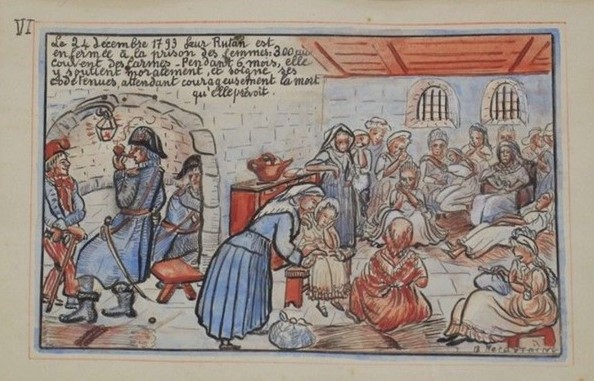 VI
Le 24 décembre 1793 Sœur Rutan est
enfermée à la prison des femmes. 300 au
couvent des Carmes - Pendant 6 mois, elle
y soutient moralement, et soigne ses
codétenues, attendant courageusement la mort
qu'elle prévoit.